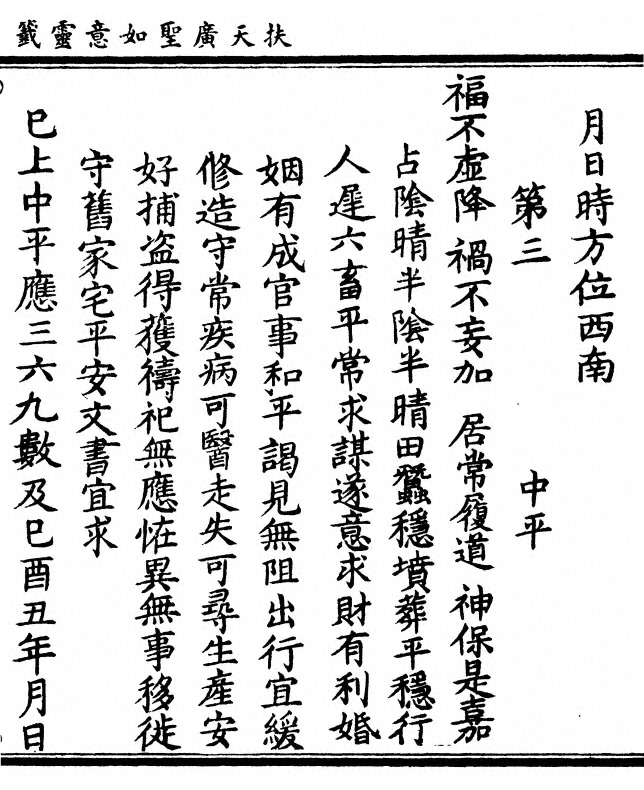 扶天廣聖如意靈籤
月日時方位西南
第三 中平
福不虛降 禍不妄加 居常履道 神保是嘉
占陰晴半陰半晴田蠶穩墳葬平穩行
人遲六畜平常求謀遂意求財有利婚
姻有成官事和平謁見無阻出行宜緩
修造守常疾病可醫走失可尋生產安
好捕盜得獲禱祀無應恠異無事移徙
守舊家宅平安文書宜求
巳上中平應三六九數及巳酉丑年月日